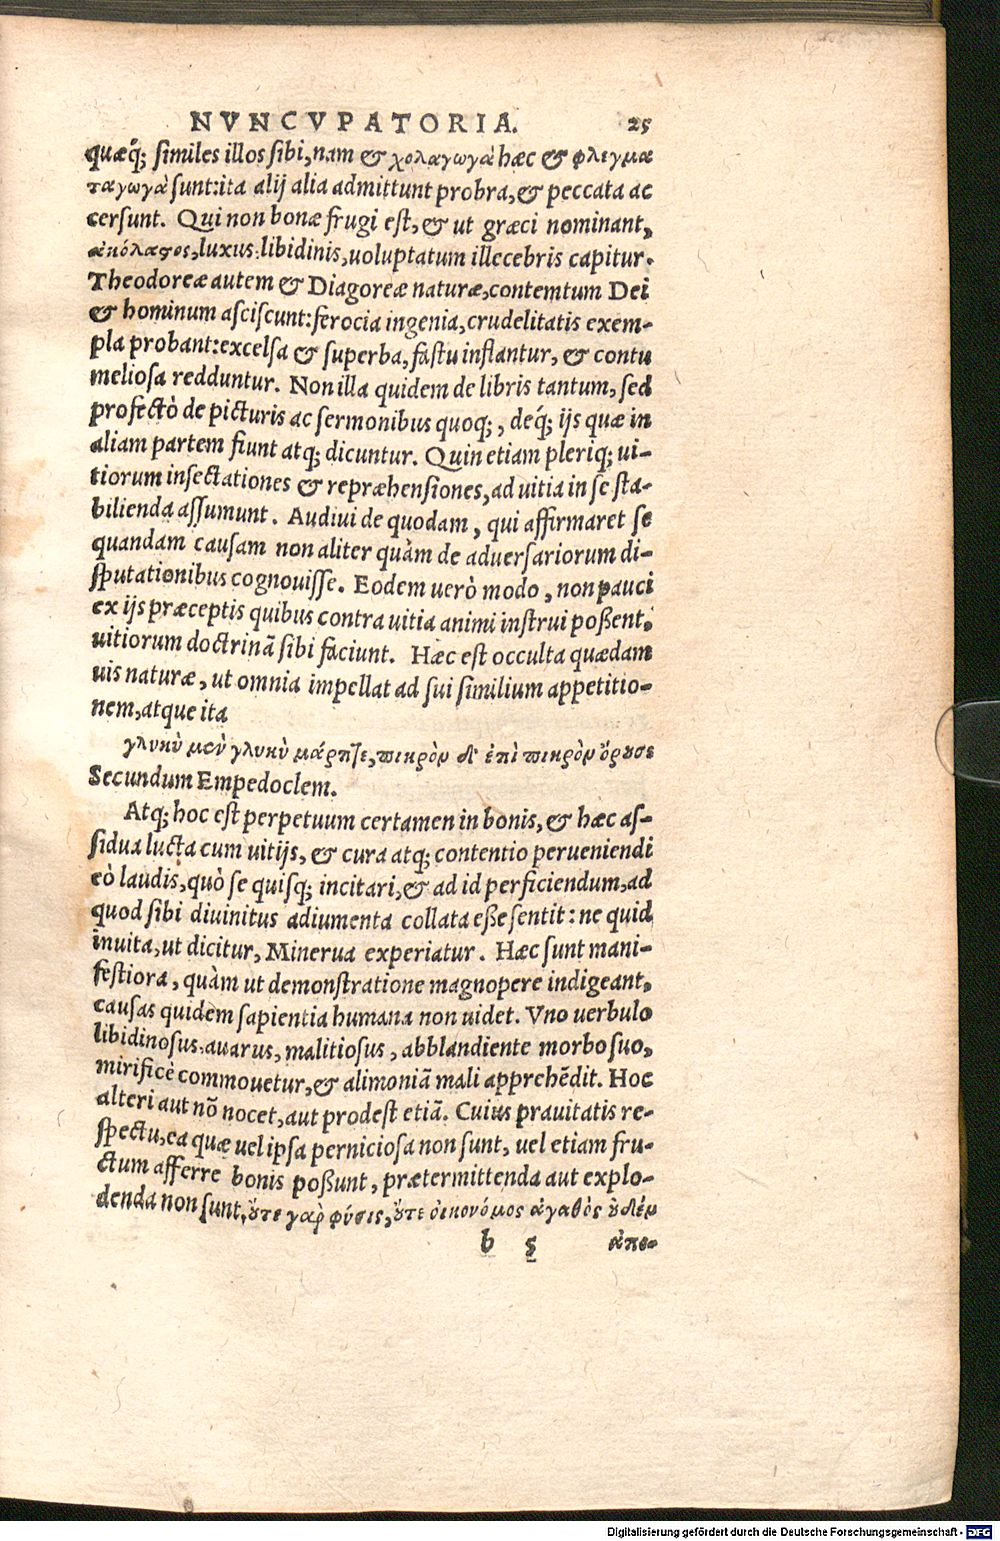 NVNCVPATORIA. 25
quæq́; similes illos sibi, nam & χολαγωγὰ hæc & φλεγμα
ταγωγὰ sunt: ita alij alia admittunt probra, & peccata ac
cersunt. Qui non bonæ frugi est, & ut græci nominant,
ἀκόλαστος, luxus libidinis, uoluptatum illecebris capitur.
Theodoreæ autem & Diagoreæ naturæ, contemtum Dei
& hominum asciscunt: ferocia ingenia, crudelitatis exem-
pla probant: excelsa & superba, fastu inflantur, & contu
meliosa redduntur. Non illa quidem de libris tantum, sed
profectò de picturis ac sermonibus quoq;, deq́; ijs quæ in
aliam partem fiunt atq; dicuntur. Quin etiam pleriq; ui-
tiorum insectationes & repræhensiones, ad uitia in se sta-
bilienda assumunt. Audiui de quodam, qui affirmaret se
quandam causam non aliter quàm de aduersariorum di-
sputationibus cognouisse. Eodem uerò modo, non pauci
ex ijs præceptis quibus contra uitia animi instrui poßent,
uitiorum doctrinã sibi faciunt. Hæc est occulta quædam
uis naturæ, ut omnia impellat ad sui similium appetitio-
nem, atque ita
γλυκὺ μὲν γλυκὺ μάρπτε, πικρὸν δ' ἐπὶ πικρὸν ὄρουσε
Secundum Empedoclem.
Atq; hoc est perpetuum certamen in bonis, & hæc as-
sidua lucta cum uitijs, & cura atq; contentio perueniendi
eò laudis, quò se quisq; incitari, & ad id perficiendum, ad
quod sibi diuinitus adiumenta collata eße sentit: ne quid
inuita, ut dicitur, Minerua experiatur. Hæc sunt mani-
festiora, quàm ut demonstratione magnopere indigeant,
causas quidem sapientia humana non uidet. Vno uerbulo
libidinosus, auarus, malitiosus, abblandiente morbo suo,
mirificè commouetur, & alimoniã mali apprehẽdit. Hoc
alteri aut nõ nocet, aut prodest etiã. Cuius prauitatis re-
spectu, ea quæ uel ipsa perniciosa non sunt, uel etiam fru-
ctum afferre bonis poßunt, prætermittenda aut explo-
denda non sunt, ὔτε γαρ φύσις, ὔτε οἰκονόμος ἀγαθὸς ὐδὲμ
b 5 ἀπο-
Digitalisierung gefördert durch die Deutsche Forschungsgemeinschaft - DFG